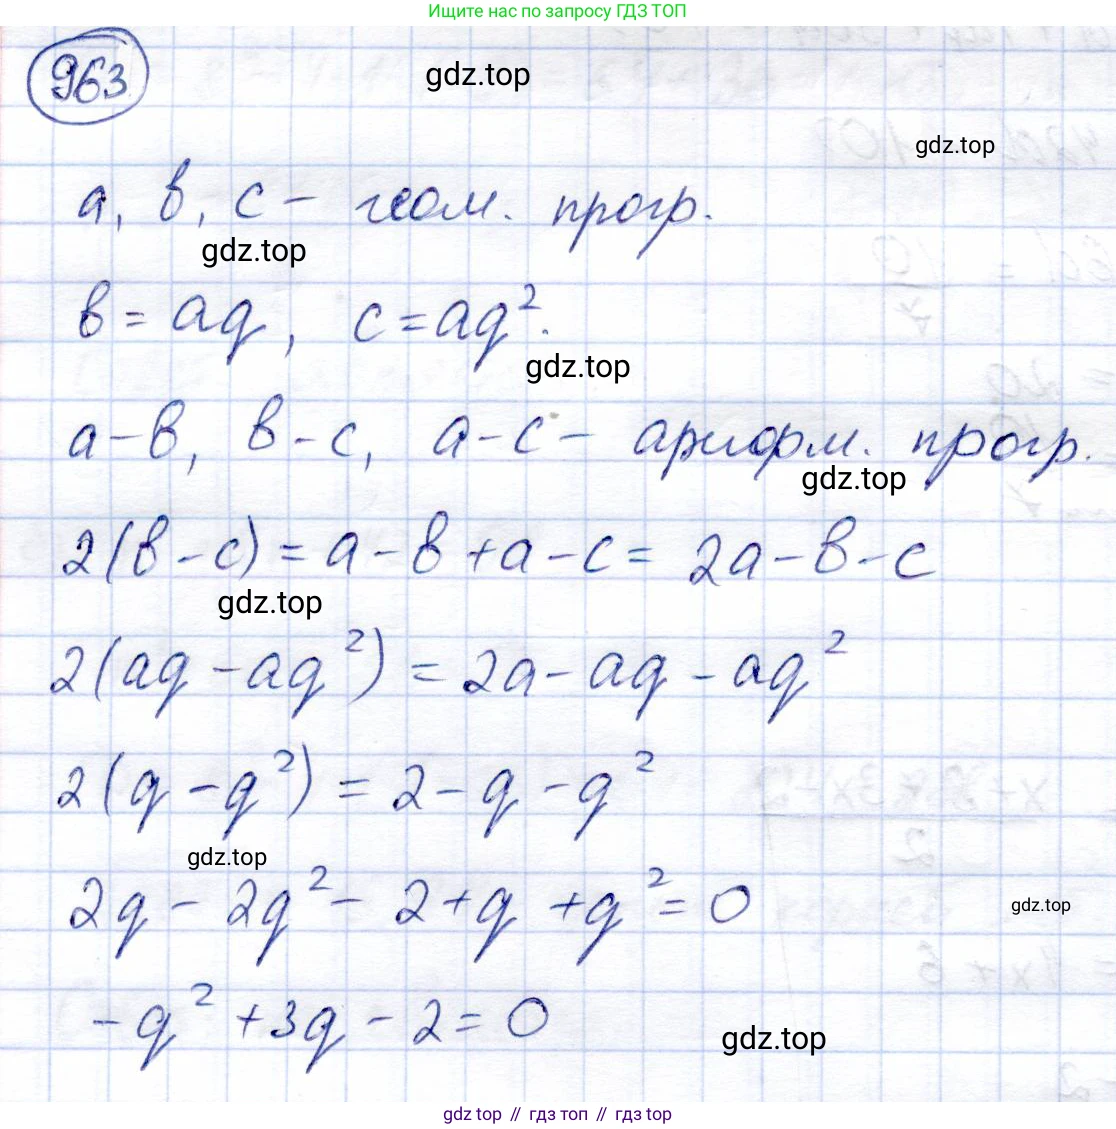 Ищите нас по запросу ГДЗ ТОП
963
gdz.top
gdz.top
а, в, с – геом. прогр.
gdz.top
в = aq, c = aq².
gdz.top
а – в, в – с, а – с – арифм. прогр.
gdz.top
2(в – с) = а – в + а – с = 2а – в – с
gdz.top
2(aq – aq²) = 2a – aq – aq²
2(q – q²) = 2 – q – q²
gdz.top
2q – 2q² – 2 + q + q² = 0
gdz.top
– q² + 3q – 2 = 0
gdz.top
gdz top // гдз топ // гдз top